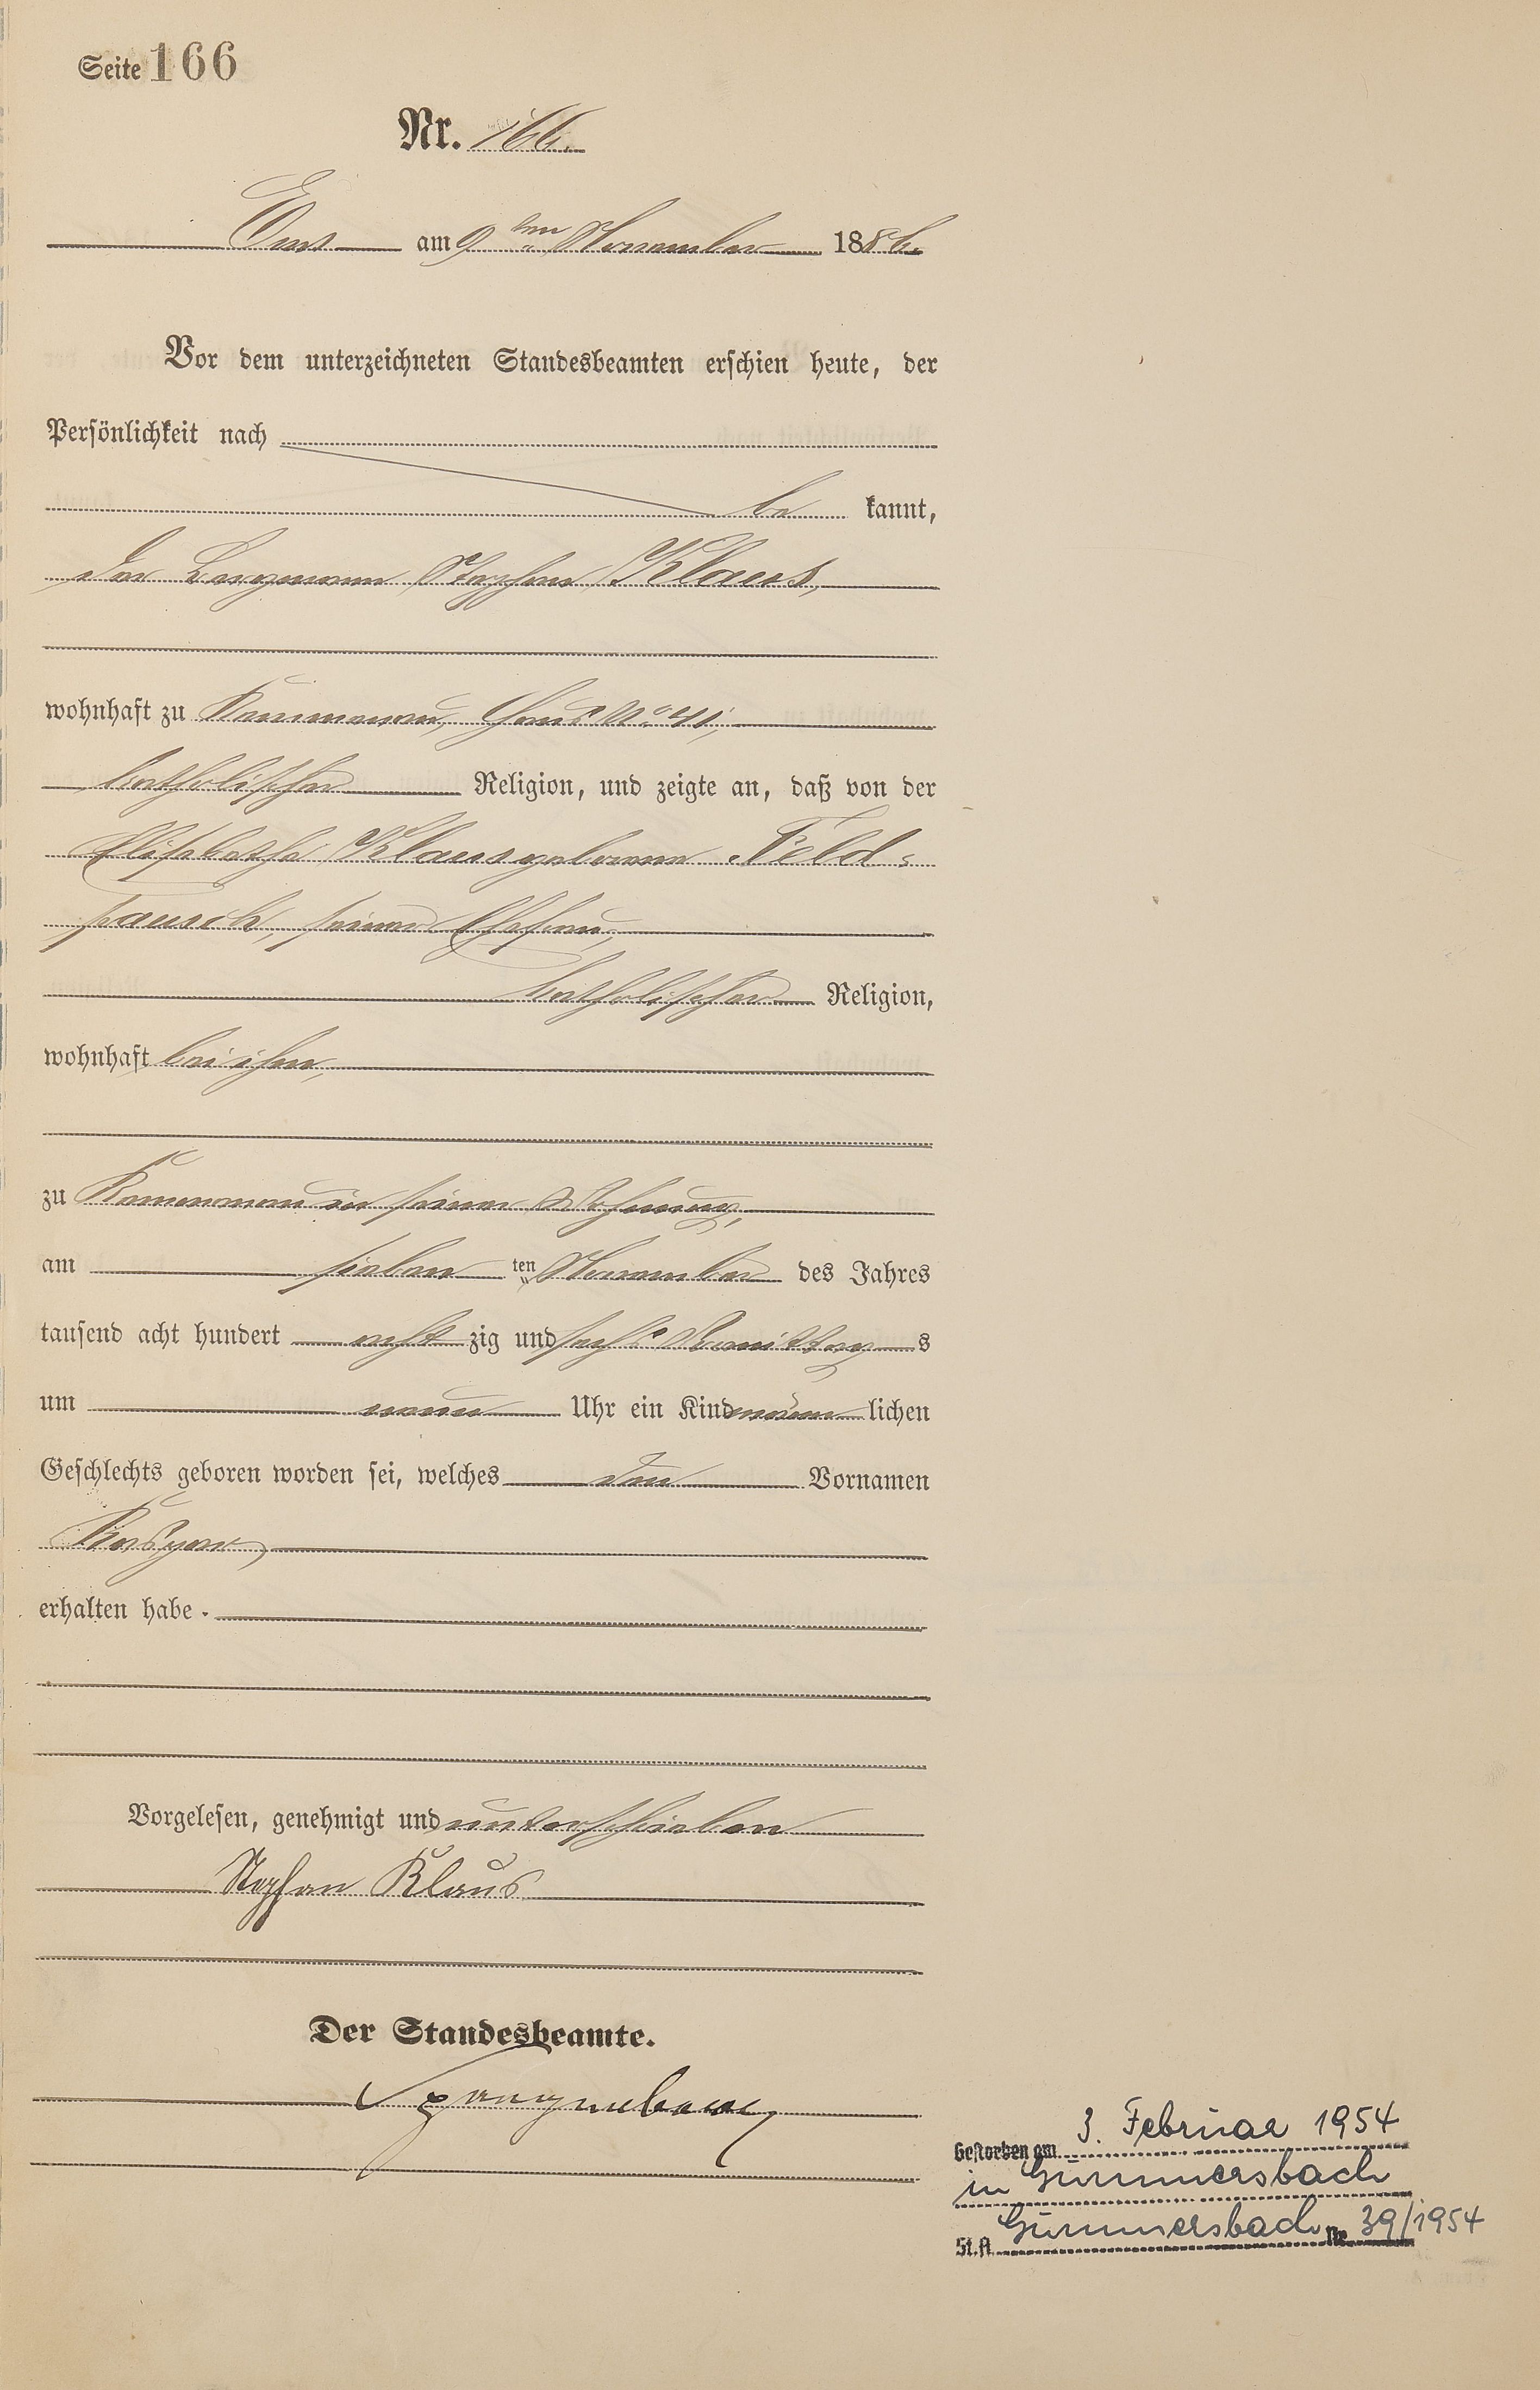 Seite 166
Nr. 166.
Ems am 9ten November 1886.
Vor dem unterzeichneten Standesbeamten erschien heute, der
Persönlichkeit nach
be kannt,
der Bergmann Stephan Klaus,
wohnhaft zu Kemmenau, Haus No 41,
katholischer Religion, und zeigte an, daß von der
Elisabetha Klaus geborene Feld-
pausch, seiner Ehefrau,
katholischer Religion,
wohnhaft bei ihm,
zu Kemmenau in seiner Wohnung,
am sieben ten November des Jahres
tausend acht hundert acht zig und sechs Vormittag s
um neun Uhr ein Kind männ lichen
Geschlechts geboren worden sei, welches den Vornamen
Kaspar,
erhalten habe.
Vorgelesen, genehmigt und unterschrieben
Stephan Klaus
Der Standesbeamte.
Spangenberg
Gestorben am 3. Februar 1954
in Gummersbach
St.A. Gummersbach Nr. 39/1954